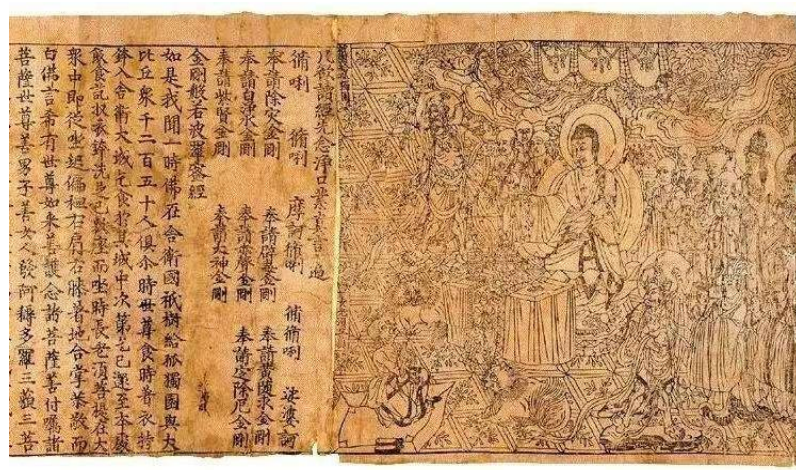 凡欲讀經先念淨口業真言一遍
脩唎 脩唎 摩訶脩唎 脩脩唎 娑婆訶
奉請除灾金剛 奉請辟毒金剛 奉請黄随求金剛
奉請白 水金剛 奉請赤聲金剛 奉請定除厄金剛
奉請紫賢金剛 奉請大神金剛
金剛般若波羅蜜經
如是我聞一時佛在舍衛國祇樹給孤獨園與大
比丘衆千二百五十人俱尒時世尊食時著衣持
鉢入舍衛大城乞食於其城中次第乞已還至本處
飯食訖收衣鉢洗足已敷座而坐時長老須菩提在大
衆中即從坐起偏袒右肩右膝著地合掌恭敬而
白佛言希有世尊如來善護念諸菩薩善付囑諸
菩薩世尊善男子善女人發阿耨多羅三藐三菩